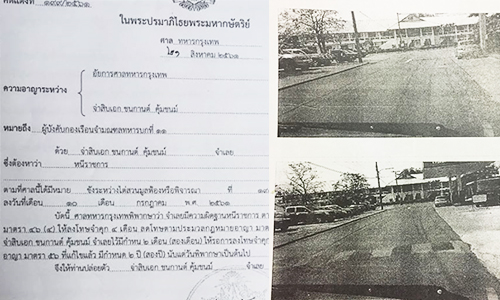 ๑๙๙/๒๕๖๑
ในพระปรมาภิไธยพระมหากษัตริย์
ศาล ทหารกรุงเทพ
สิงหาคม ๒๕๖๑
อัยการศาลทหารกรุงเทพ
ความอาญาระหว่าง
จ่าสิบเอก ชนกานต์ คุ้มชนม์
หมายถึง ผู้บังคับกองเรือนจำมณฑลทหารบกที่ ๑๑
ด้วย จ่าสิบเอก ชนกานต์ คุ้มชนม์ จำเลย
ซึ่งต้องหาว่า หนีราชการ
ตามที่ศาลนี้ได้มีหมาย ขังระหว่างไต่สวนมูลฟ้องหรือพิจารณา ที่
ลงวันที่เดือน ๑๐ เดือน กรกฎาคม พ.ศ. ๒๕๖๑
บัดนี้ ศาลทหารกรุงเทพพิพากษาว่า จำเลยมีความผิดฐานหนีราชการ
มาตรา ๔๖ (๔) ให้ลงโทษจำคุก ๔ เดือน ลดโทษตามประมวลกฎหมายอาญา
จ่าสิบเอก ชนกานต์ คุ้มชนม์ จำเลยไว้มีกำหนด ๒ เดือน (สองเดือน) ให้รอการลงโทษจำคุก
อาญา มาตรา ๕๖ ที่แก้ไขแล้ว มีกำหนด ๒ ปี (สองปี) นับแต่วันพิพากษาเป็นต้นไป
จึงให้ท่านปล่อยตัว จ่าสิบเอก ชนกานต์ คุ้มชนม์ จำเลย